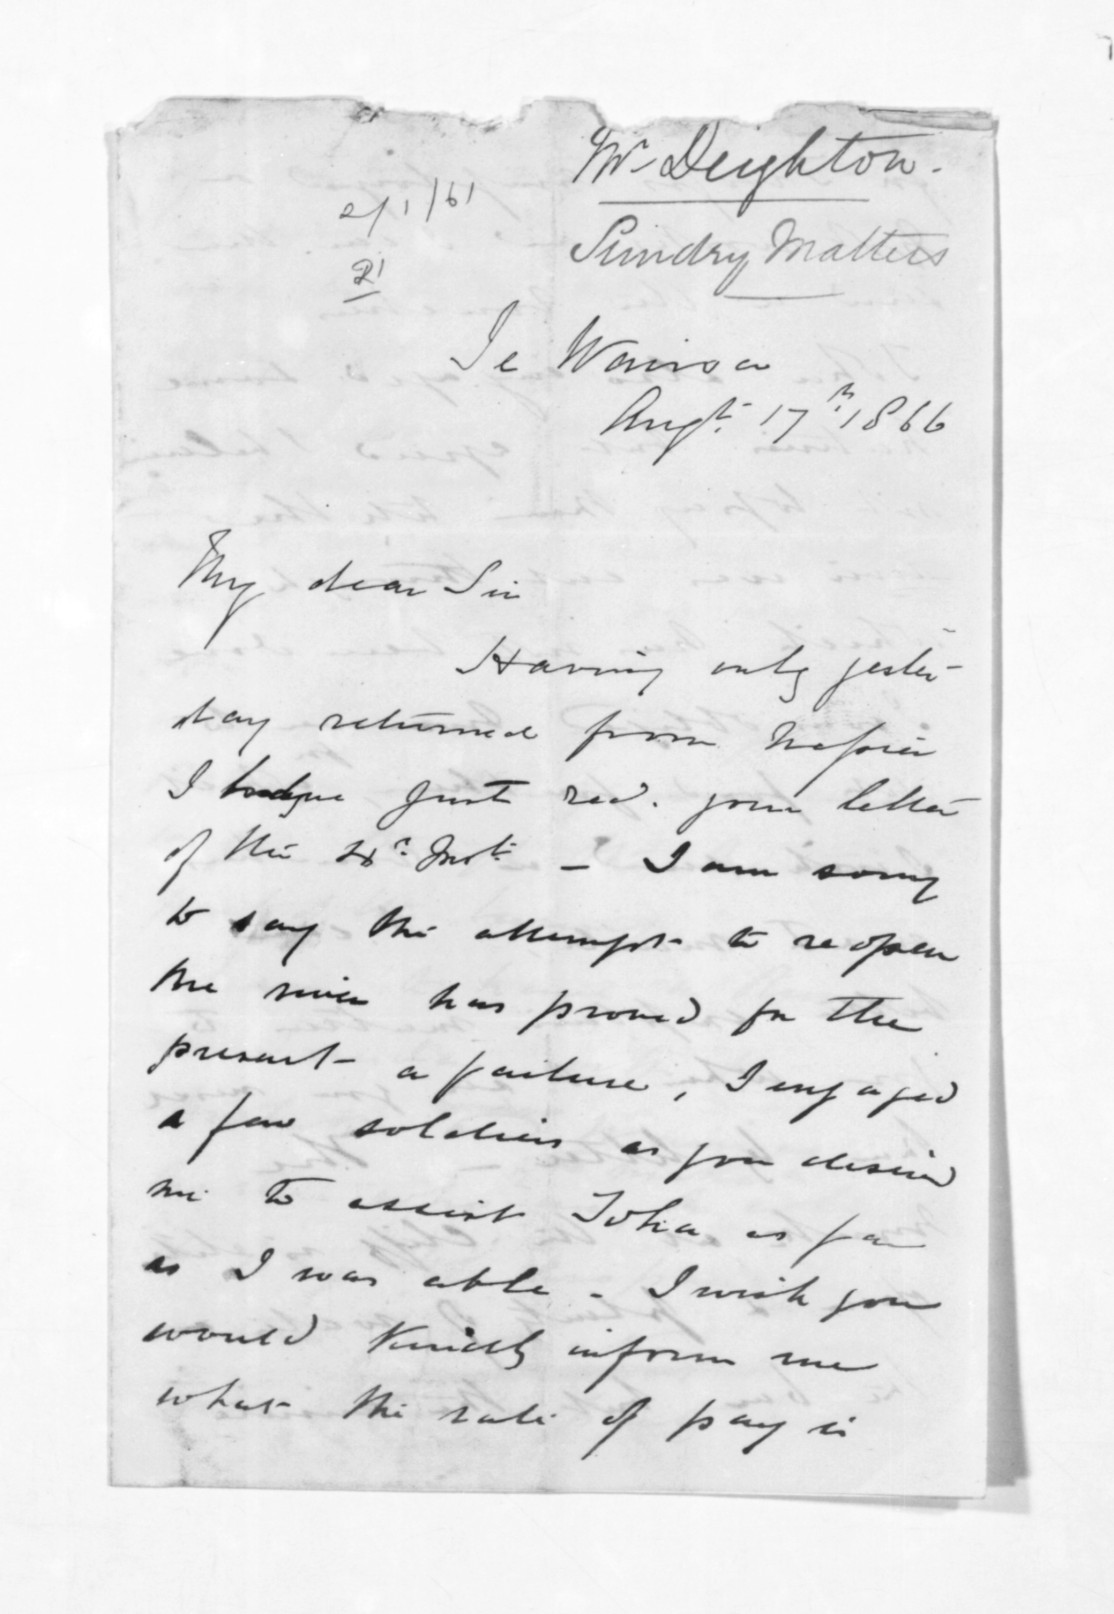 Mr Deighton.
2/1/61
Sundry Matters
21
Te Wairoa
Augt. 17th 1866
My dear Sir
Having only yester-
day returned from Napier
I have just recd. your letter
of the Inst. - I am sorry
to say the attempt to reopen
the river has proved for the
present a failure, I engaged
a few soldiers as you desired
me to assist Toha as far
as I was able - I wish you
would kindly inform me
what the rate of pay is